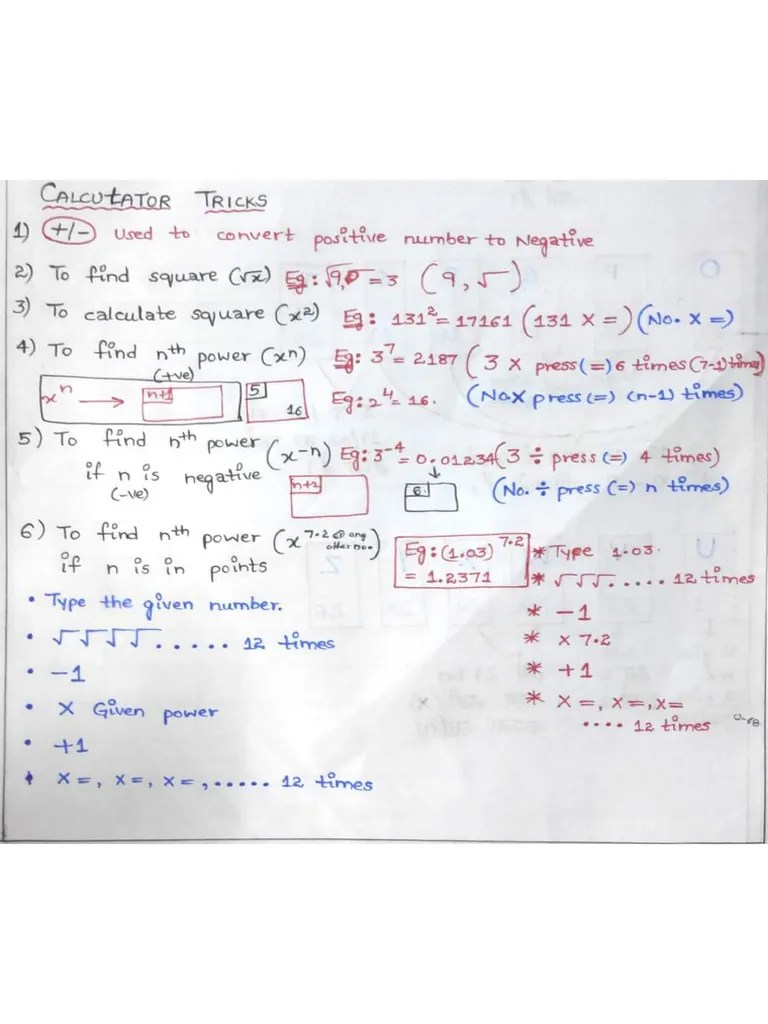 CALCUtATOR TRICKS
1) +/- used to convert positive number to Negative
2) To find square (√x) Eg: √9,0 = 3 (9, √)
3) To calculate square (x²) Eg: 131² = 17161 (131 X =) (No. X =)
4) To find nth power (xⁿ) Eg: 3⁷ = 2187 (3 X press (=) 6 times (7-1) times)
(+ve)
xⁿ → n+1 5 16 Eg: 2⁴ = 16. (No.X press (=) (n-1) times)
5) To find nth power (x-n) Eg: 3⁻⁴ = 0.01234 (3 ÷ press (=) 4 times)
if n is negative n+2 6. (No. ÷ press (=) n times)
(-ve)
6) To find nth power (x 7.2 @ any other no.)
if n is in points
Eg: (1.03) 7.2
= 1.2371
• Type the given number.
• √ √ √ √ ..... 12 times
• -1
• X Given power
• +1
• X =, X =, X =, ..... 12 times
* Type 1.03.
* √ √ √ ..... 12 times
* -1
* x 7.2
* +1
* X =, X =, X=
.... 12 times